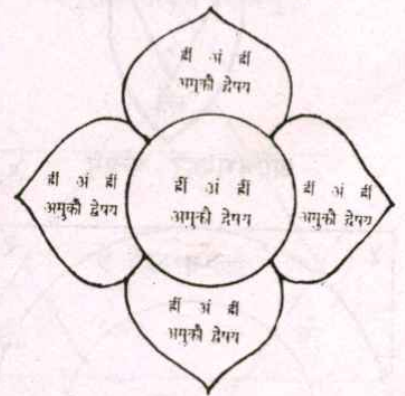 ह्रीं अं ह्रीं
अमुकी द्वेषय
ह्रीं अं ह्रीं
अमुकी द्वेषय
ह्रीं अं ह्रीं
अमुकी द्वेषय
ह्रीं अं ह्रीं
अमुकी द्वेषय
ह्रीं अं ह्रीं
अमुकी द्वेषय